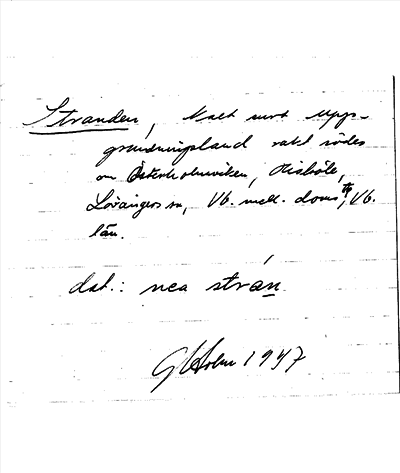 Stranden, kalt surt upp-
grundningsland rakt söder
om Österholmsviken, Hisböle,
Lövångers sn, Vb. mell. doms, Vb.
län.
dat.: nea strán
G Holm 1947